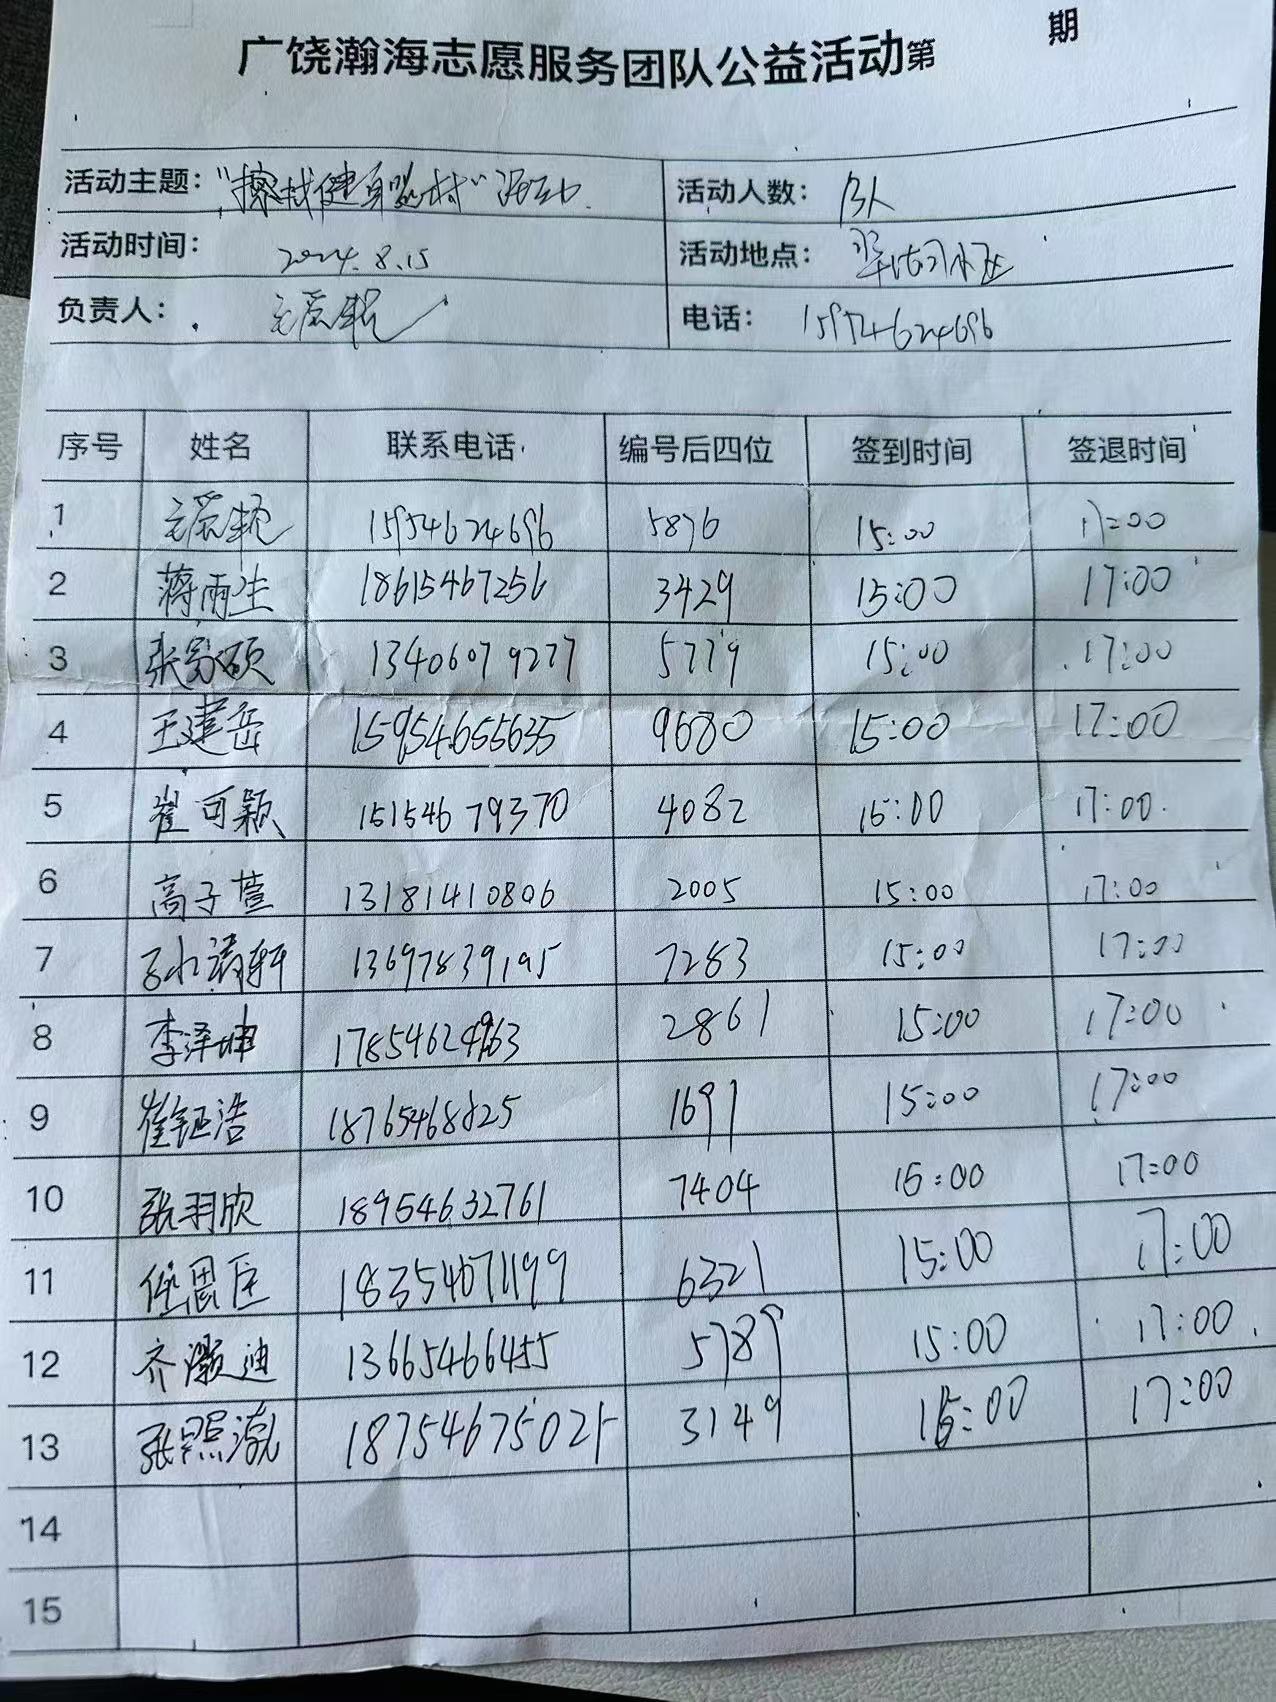 广饶瀚海志愿服务团队公益活动第 期
活动主题："擦拭健身器材"活动 活动人数：13人
活动时间：2024.8.15 活动地点：小区
负责人： 电话：15954624696
序号 姓名 联系电话 编号后四位 签到时间 签退时间
1 15954624696 5876 15:00 17:00
2 蒋雨生 18615467256 3429 15:00 17:00
3 张家硕 13406079277 5779 15:00 17:00
4 王建岳 15954655635 9680 15:00 17:00
5 崔可颖 15154679370 4082 15:00 17:00
6 高子萱 13181410806 2005 15:00 17:00
7 13697839195 7283 15:00 17:00
8 李泽坤 2861 15:00 17:00
9 崔钲浩 18765468825 1691 15:00 17:00
10 张羽欣 18954632761 7404 15:00 17:00
11 18354671199 6321 15:00 17:00
12 齐灏迪 13665466455 5789 15:00 17:00
13 18754675021 3149 15:00 17:00
14
15